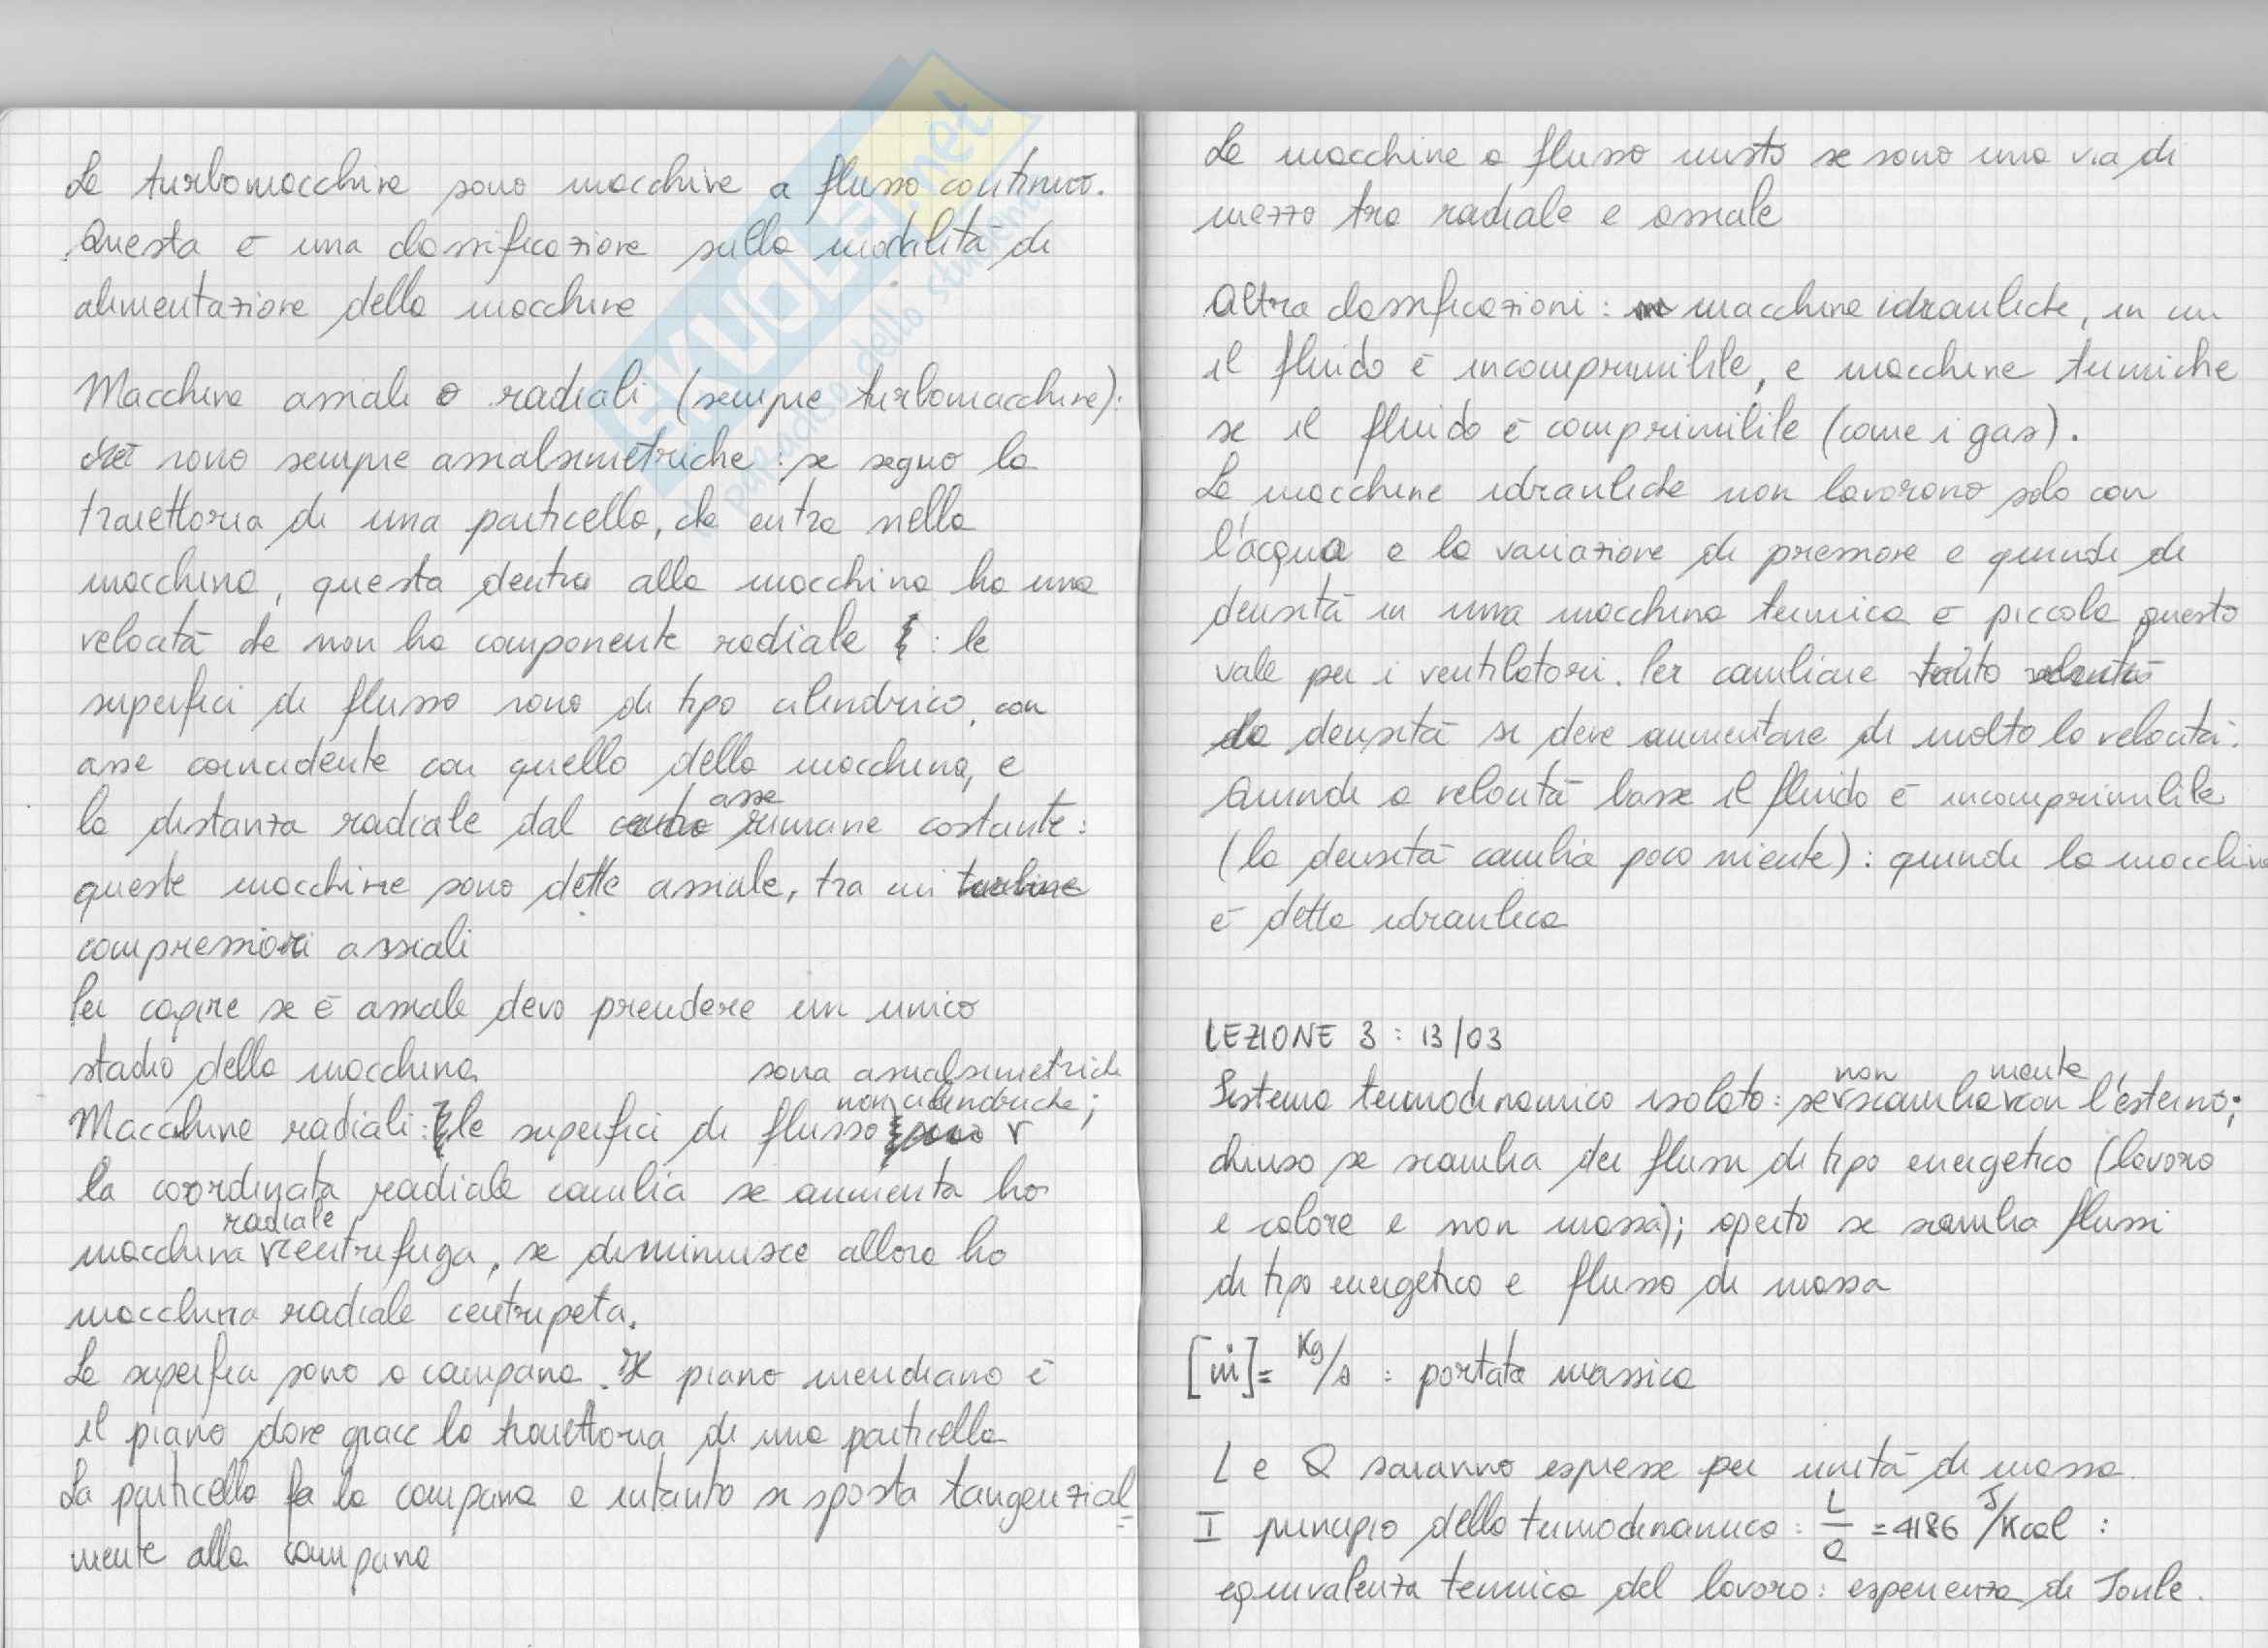 Le turbomacchine sono macchine a flusso continuo.
Questa è una classificazione sulla modalità di
alimentazione della macchine
Macchine assiali o radiali (sempre turbomacchine):
sono sempre assialsimetriche: se seguo la
traiettoria di una particella, che entra nella
macchina, questa dentro alla macchina ha una
velocità che non ha componente radiale : le
superfici di flusso sono di tipo cilindrico, con
asse coincidente con quello della macchina, e
la distanza radiale dal asse rimane costante:
queste macchine sono dette assiale, tra cui
compressori assiali
Per capire se è assiale devo prendere un unico
stadio della macchina
Macchine radiali: le superfici di flusso sono assialsimetriche non cilindriche;
la coordinata radiale cambia se aumenta ho
macchina radiale centrifuga, se diminuisce allora ho
macchina radiale centripeta.
Le superfici sono a campana. Il piano meridiano è
il piano dove giace la traiettoria di una particella
La particella fa la campana e intanto si sposta tangenzial
mente alla campana
Le macchine a flusso misto se sono una via di
mezzo tra radiale e assiale
Altra classificazioni: macchine idrauliche, in cui
il fluido è incomprimibile, e macchine termiche
se il fluido è comprimibile (come i gas).
Le macchine idrauliche non lavorano solo con
l'acqua e la variazione di pressione e quindi di
densità in una macchina termica è piccola questo
vale per i ventilatori. Per cambiare tanto
la densità si deve aumentare di molto la velocità.
Quindi a velocità basse il fluido è incomprimibile
(la densità cambia poco niente): quindi la macchina
è detta idraulica
LEZIONE 3: 13/03
Sistema termodinamico isolato: se non scambia mente con l'esterno;
chiuso se scambia dei flussi di tipo energetico (lavoro
e calore e non massa); aperto se scambia flussi
di tipo energetico e flusso di massa
[ṁ]= Kg/s : portata massica
L e Q saranno espresse per unità di massa
I principio della termodinamica: L/Q = 4186 J/Kcal :
equivalenza termica del lavoro: esperienza di Joule.
SKUOLA.net
il paradiso dello studente